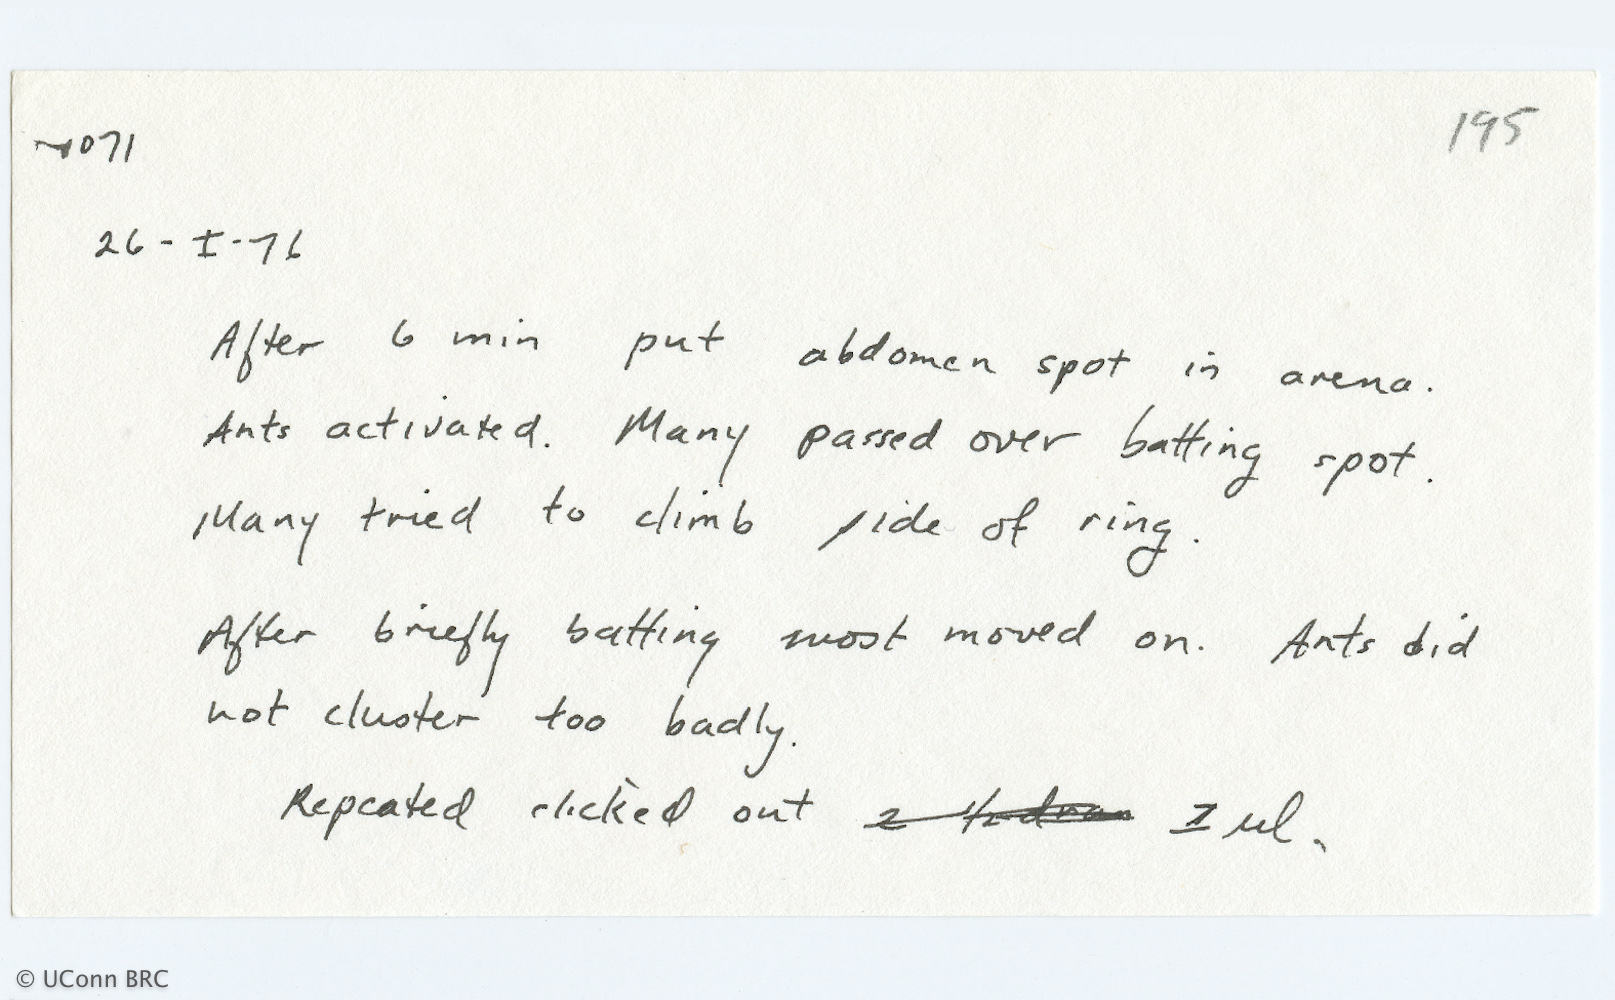 195
1071
26-I-76
After 6 min put abdomen spot in arena.
Ants activated. Many passed over batting spot.
Many tried to climb side of ring.
After briefly batting most moved on. Ants did
not cluster too badly.
Repeated clicked out 2 1 µl.
© UConn BRC